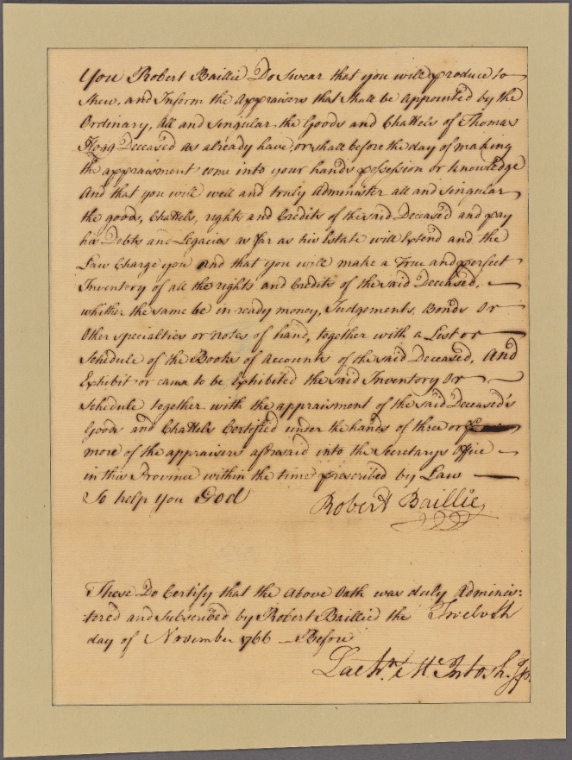 You Robert Baillie Do Swear that you will produce to
Shew, and Inform the Appraisers that Shall be Appointed by the
Ordinary, All and Singular the Goods and Chattels of Thomas
Hogg Deceased as already have, or shall before the day of making
the appraisment come into your hands possession or knowledge
And that you will well and truly Administer all and Singular
the goods, Chattels, rights and Credits of the said Deceased and pay
his Debts and Legacies as far as his Estate will Extend and the
Law Charge you And that you will make a True and perfect
Inventory of all the rights and Credits of the said Deceased,
whether the same be in ready money, Judgements, Bonds Or
Other specialties or notes of hand, together with a List or
Schedule of the Books of Accounts of the said Deceased, And
Exhibit or cause to be Exhibited the said Inventory Or
Schedule together with the appraisment of the said Deceased's
Goods and Chattels Certified under the hands of three or
more of the appraisers aforesaid into the Secretarys Office
in this Province within the time prescribed by Law
So help you God
Robert Baillie
These Do Certify that the Above Oath was duly Adminis:
tered and Subscribed by Robert Baillie the Twelvth
day of November 1766 Before
Lachn. McIntosh. Jp.